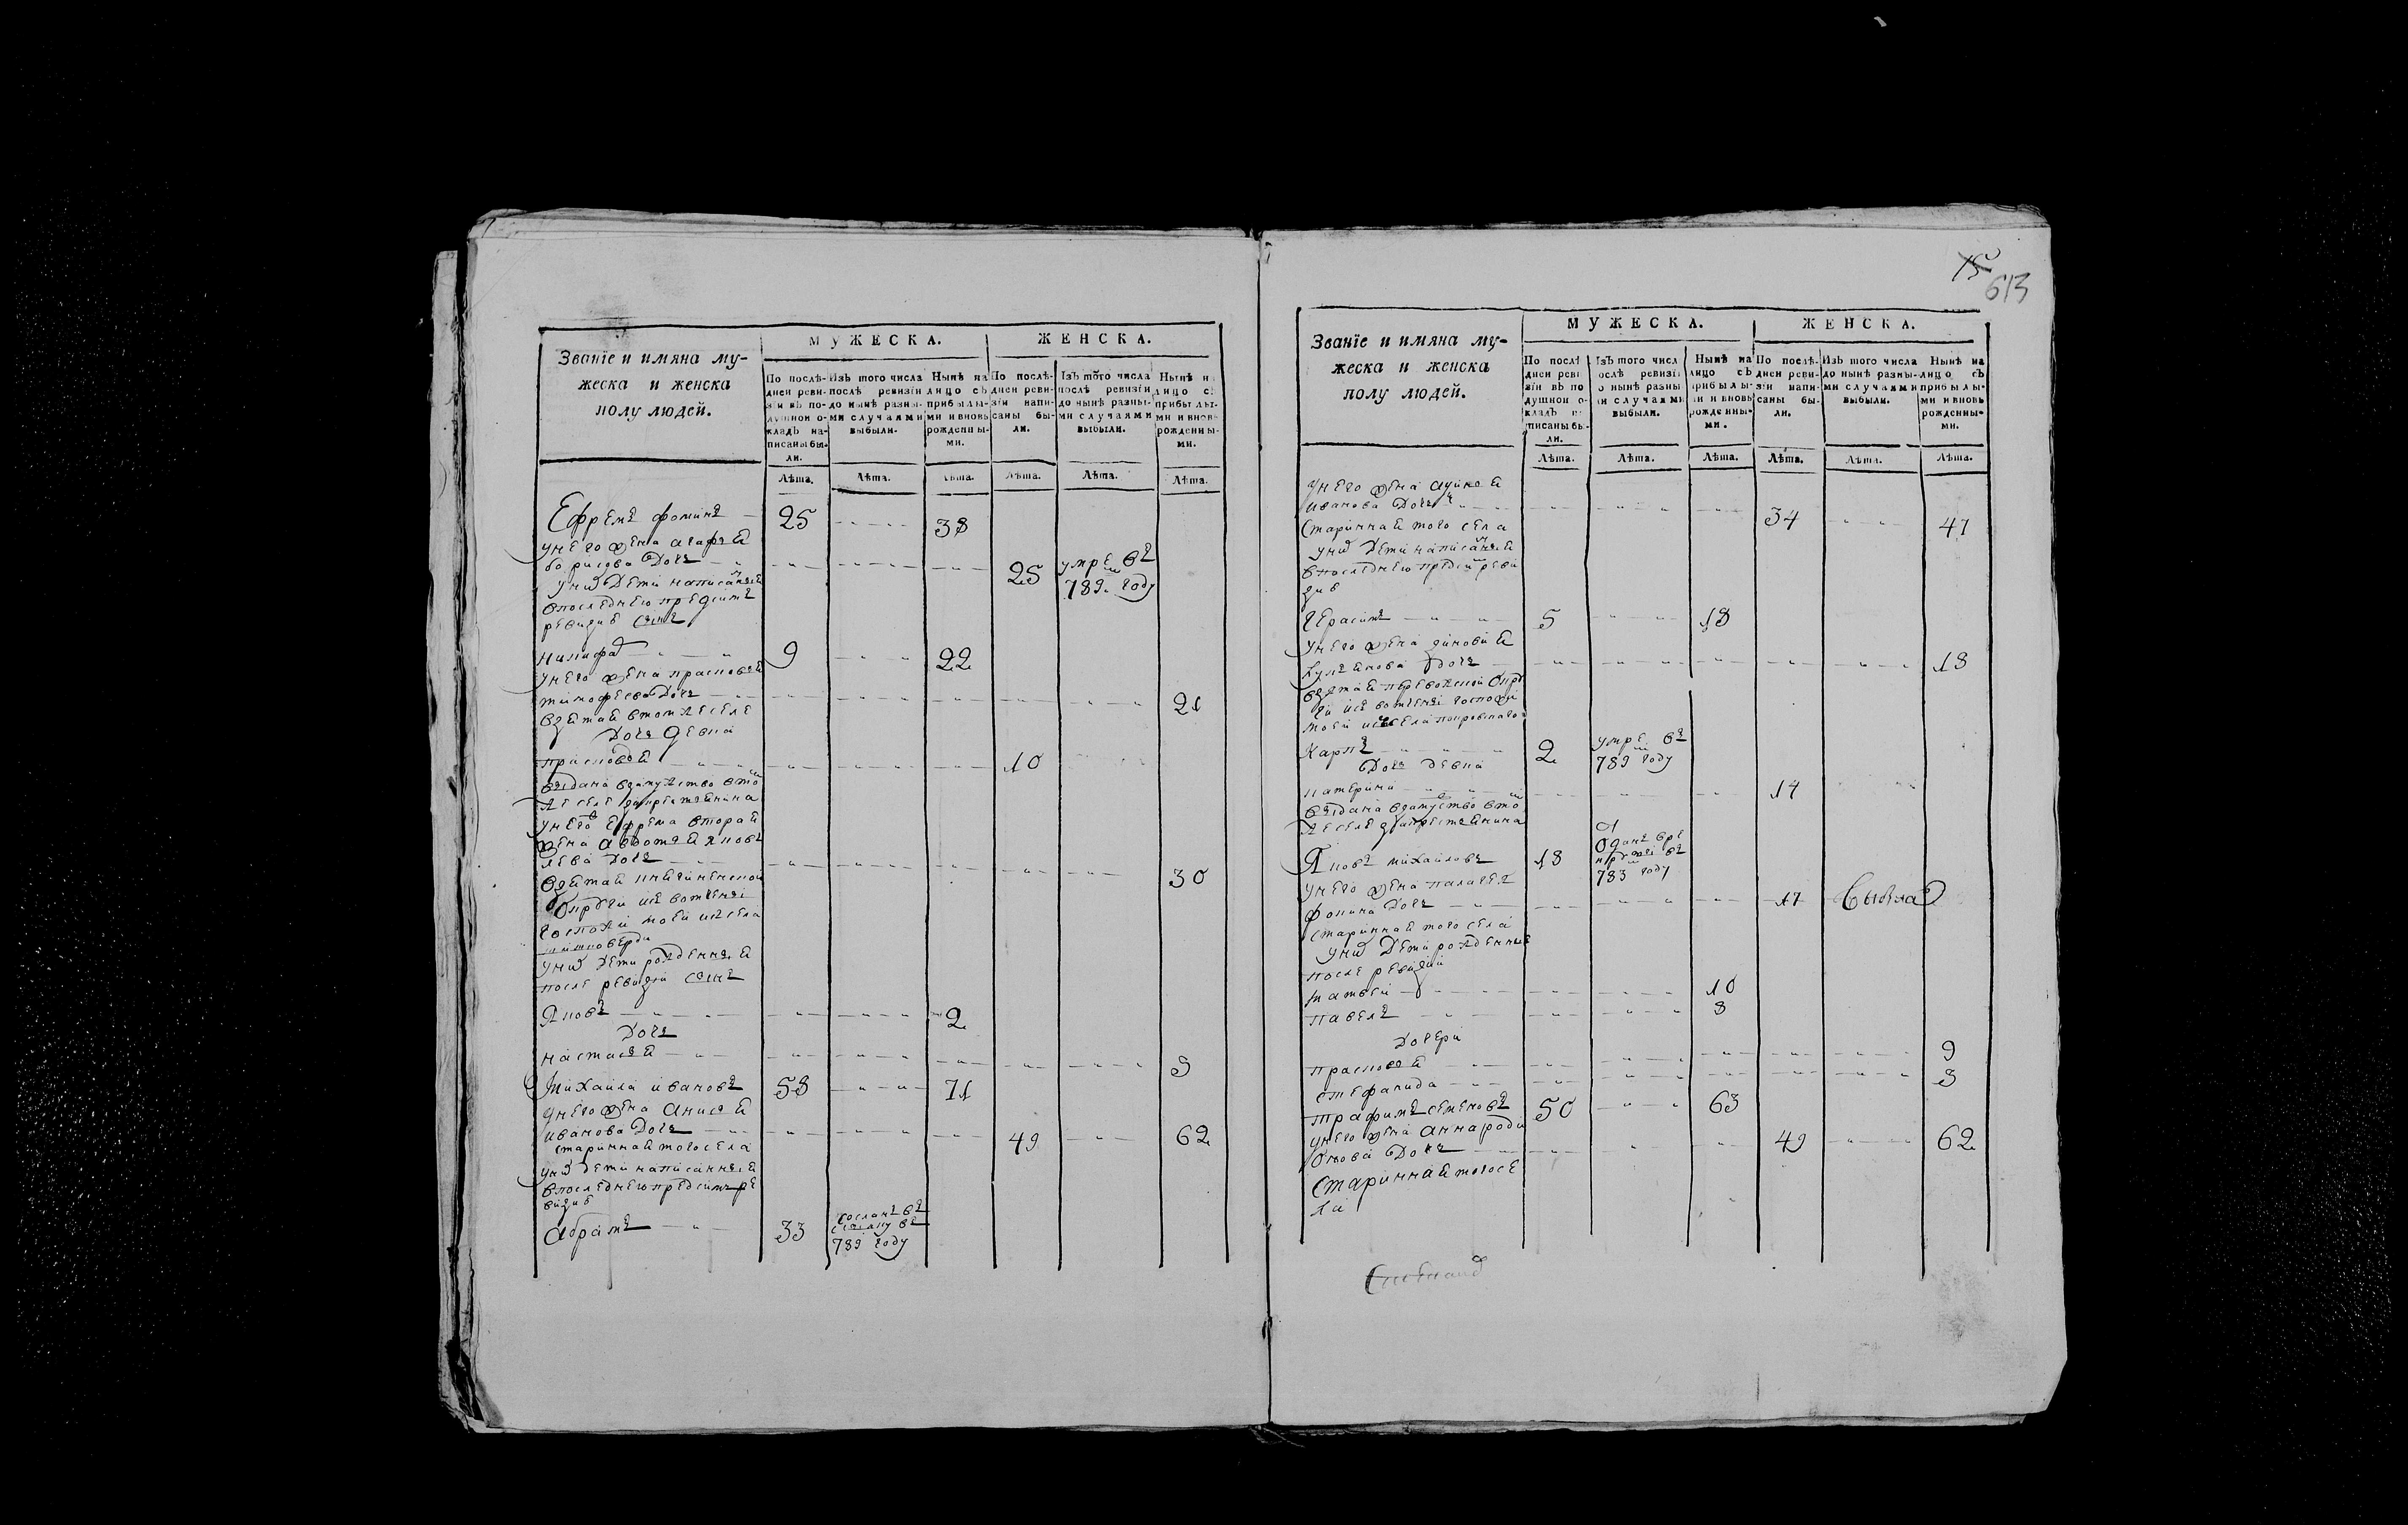 Званїе и имяна му-
жеска и женска
полу людей.
МУЖЕСКА.
ЖЕНСКА.
По послѣ-
дней реви-
зїи въ по-
душной о-
кладъ на-
писаны бы-
ли.
Изъ того числа
послѣ ревизїи
до нынѣ разны-
ми случаями
выбыли.
Нынѣ на
лицо съ
прибылы-
ми и вновь
рожденны-
ми.
По послѣ-
дней реви-
зїи напи-
саны бы-
ли.
Изъ того числа
послѣ ревизїи
до нынѣ разны-
ми случаями
выбыли.
Нынѣ н
лицо с
прибылы-
ми и вновь
рожденны-
ми.
Лѣта. Лѣта. Лѣта. Лѣта. Лѣта. Лѣта.
Ефремъ фоминъ 25 38
унего жена агафья
борисова дочь 25 умре въ
789 году
уних дети написанныя
впоследнею предсимъ
ревизие сынъ
9 22
унего жена прасковья
тимофеева дочь 21
взятая втомже селе
дочь девка
прасковья 10
выдана взамужство втом
же селе закрестьянина
унего ефрема вторая
жена авдотья яковлева дочь 30
взятая
округи из вотчины
госпожи моей из села
уних дети рожденныя
после ревизии сынъ
Яковъ 2
дочь
настасья 9
Михаила ивановъ 58 71
унего жена анисья
иванова дочь 49 62
старинная того села
уних дети написанныя
впоследнею предсимъ ре
визие
абрамъ 33 сосланъ въ
ссылку въ
789 году
15
613
Званїе и имяна му-
жеска и женска
полу людей.
МУЖЕСКА.
ЖЕНСКА.
По послѣ
дней реви
зїи въ по
душной о-
кладъ н
писаны бы-
ли.
Изъ того числ
послѣ ревизї
о нынѣ разны
ми случаями
выбыли.
Нынѣ на
лицо съ
прибылы-
ми и вновь
рожденны-
ми.
По послѣ-
дней реви-
зїи напи-
саны бы-
ли.
Изъ того числа
до нынѣ разны-
ми случаями
выбыли.
Нынѣ на
лицо съ
прибылы-
ми и вновь
рожденны-
ми.
Лѣта. Лѣта. Лѣта. Лѣта. Лѣта. Лѣта.
унего жена
иванова дочь 34 47
старинная того села
уних дети написанныя
впоследнею предсим реви
зие
герасимъ 5 18
унего жена зиновья
дочь 18
взятая окру
ги из вотчины госпожи
моей из села покровскаго
карпъ 2 умре въ
789 году
дочь девка
катерина 14
выдана взамуство втом
же селе закрестьянина
Яковъ михайловъ 18 отданъ вре
круты въ
783 году
унего жена палагея
фокина дочь 17
старинная того села
уних дети рожденные
после ревизии
матвей 10
павелъ 8
дочери
прасковья 9
степанида 3
трафимъ семеновъ 50 63
унего жена анна роди
онова дочь 49 62
старинная того се
ла